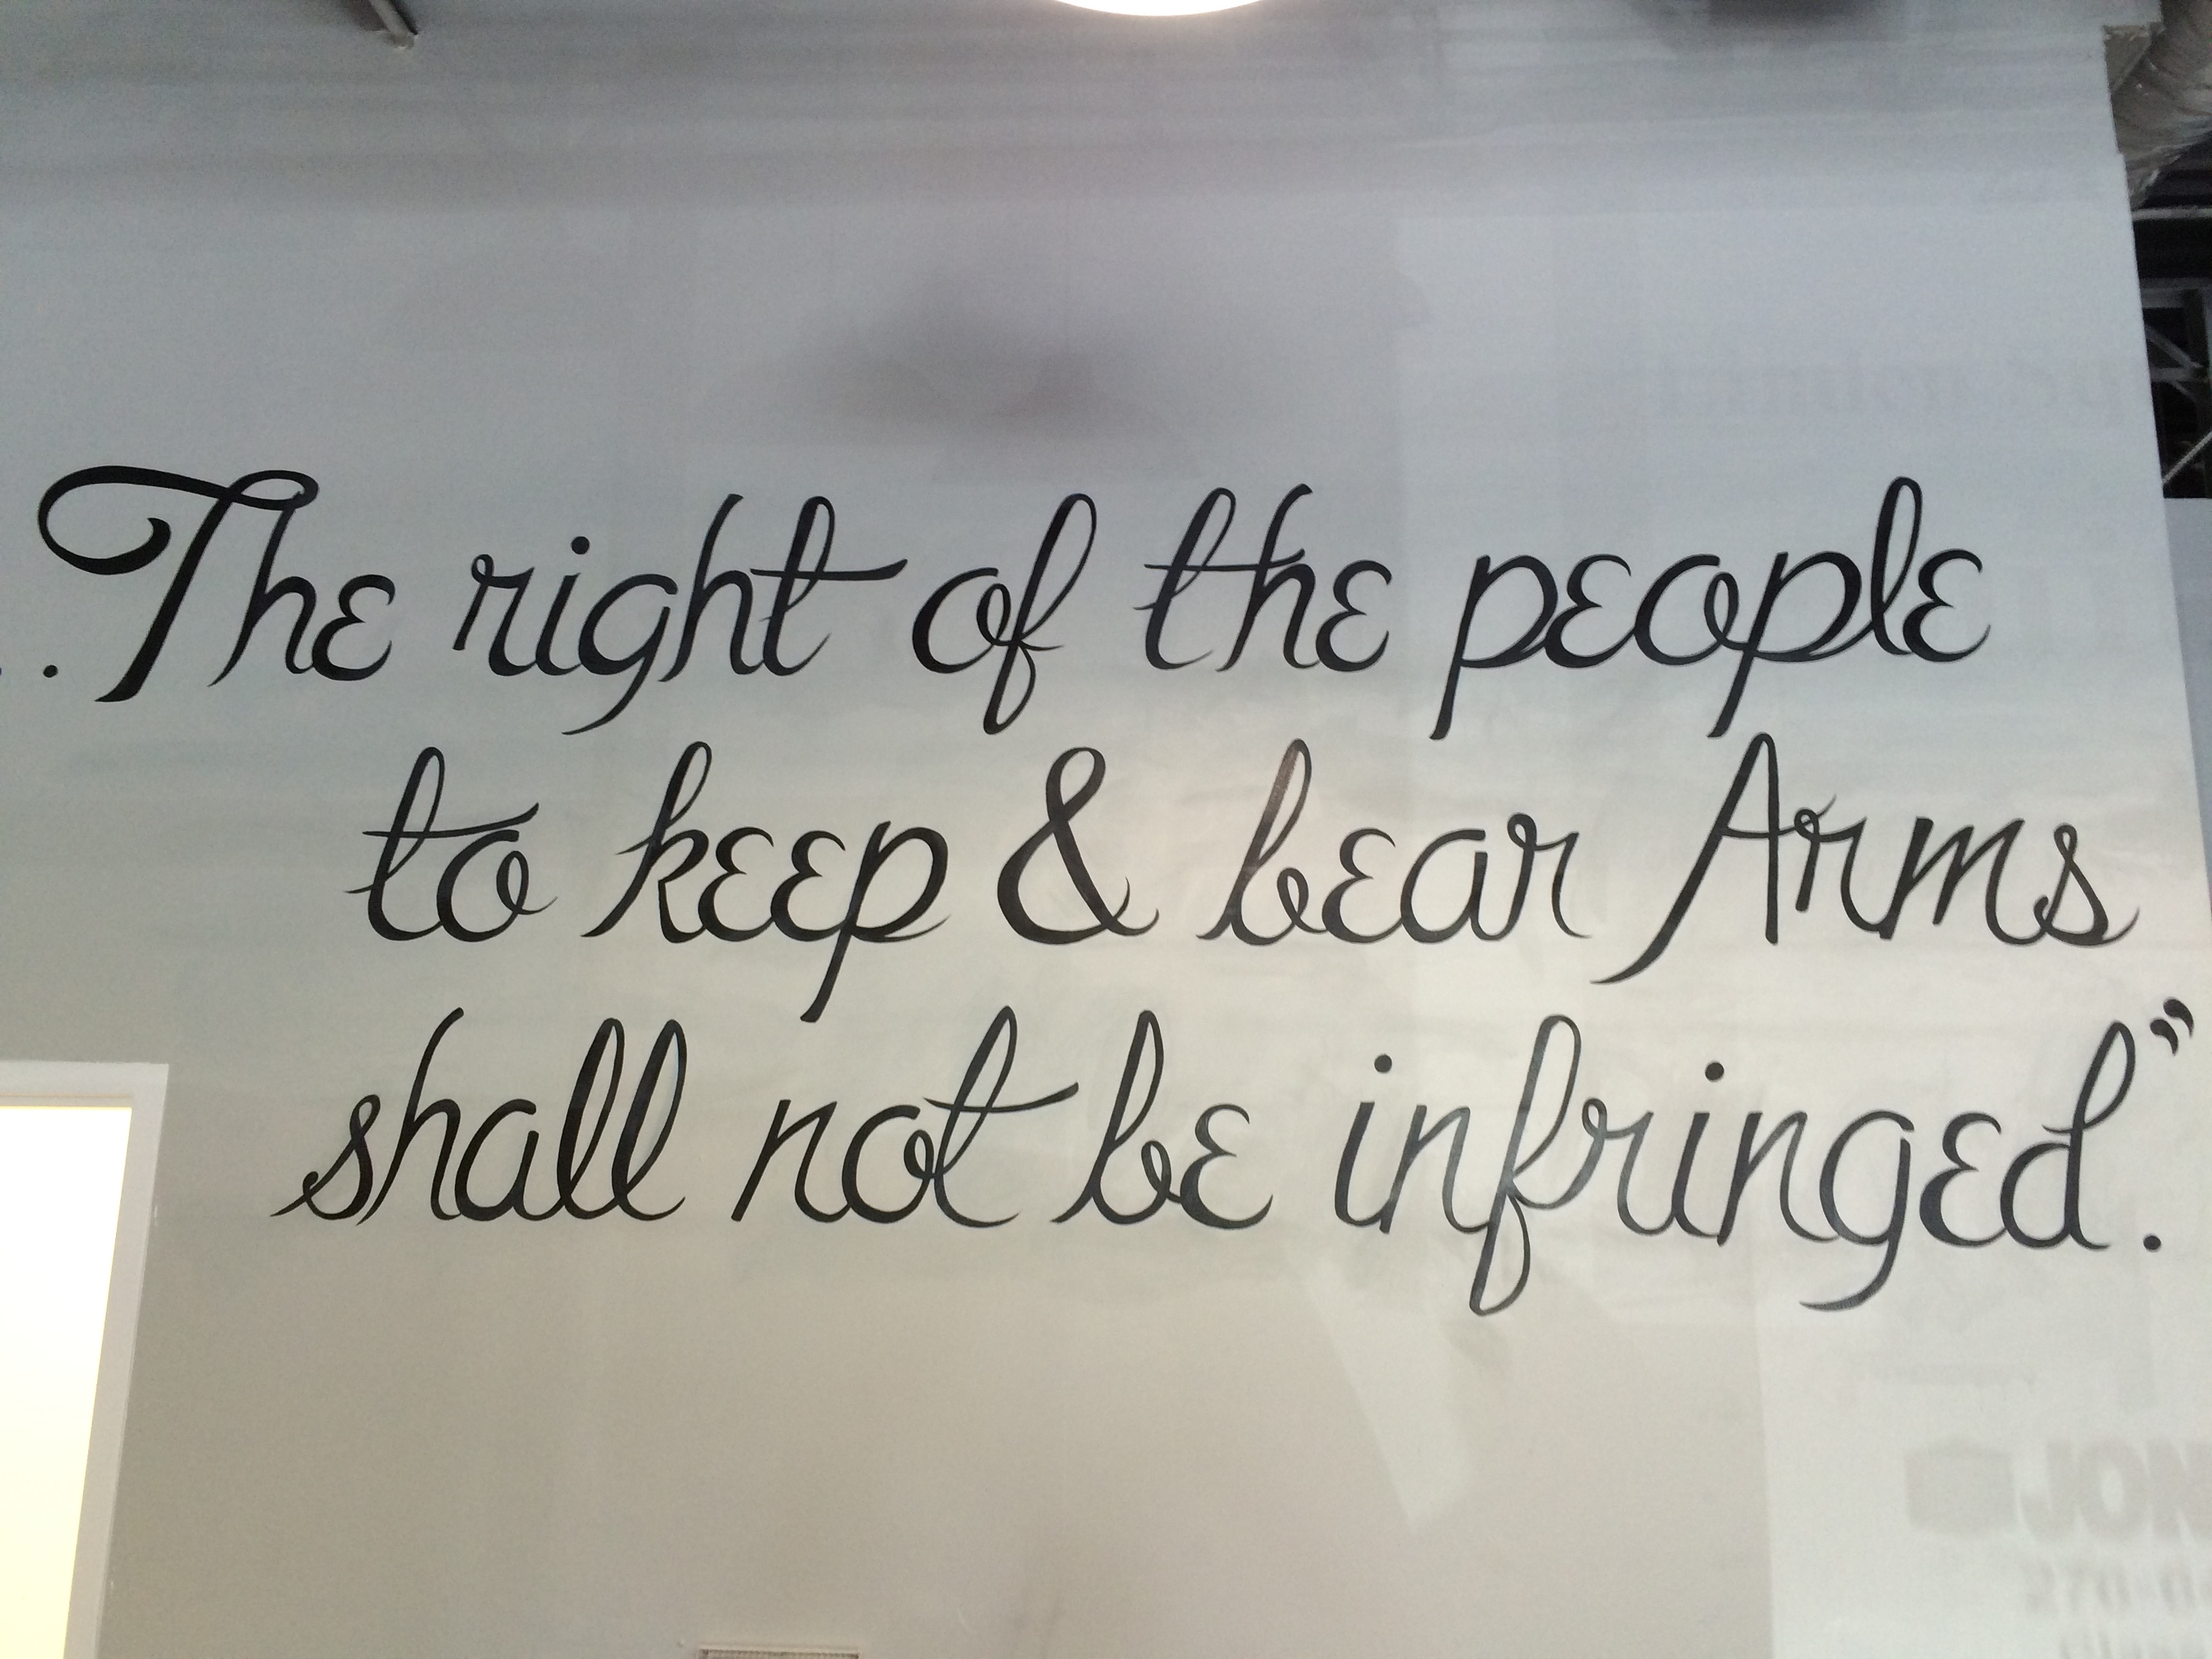 ..The right of the people
to keep & bear Arms
shall not be infringed."